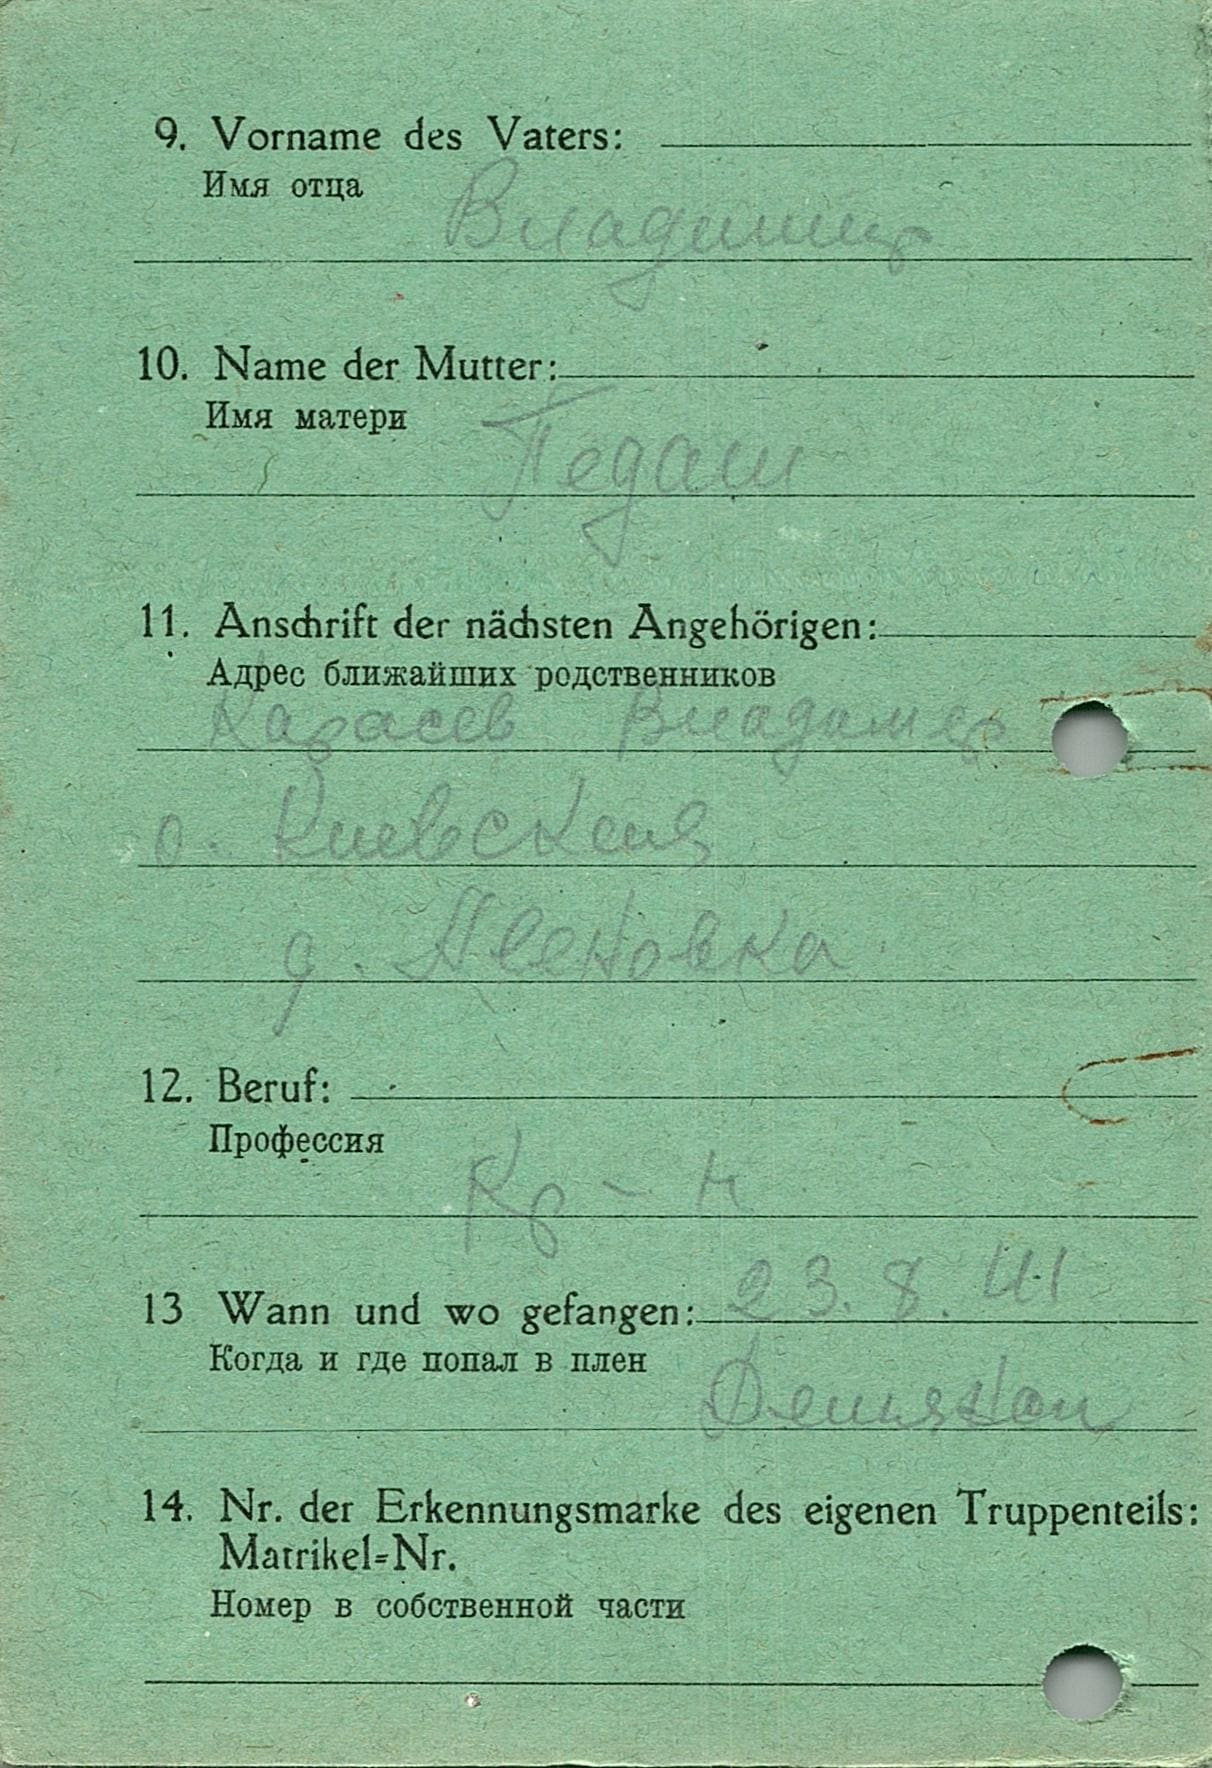 9. Vorname des Vaters:
Имя отца
Владимир
10. Name der Mutter:
Имя матери
Педаш
11. Anschrift der nächsten Angehörigen:
Адрес ближайших родственников
Карасев Владамер
о. Киевская
д.
12. Beruf:
Профессия
Кр-н
13 Wann und wo gefangen: 23.8.41
Когда и где попал в плен
14. Nr. der Erkennungsmarke des eigenen Truppenteils:
Matrikel=Nr.
Номер в собственной части